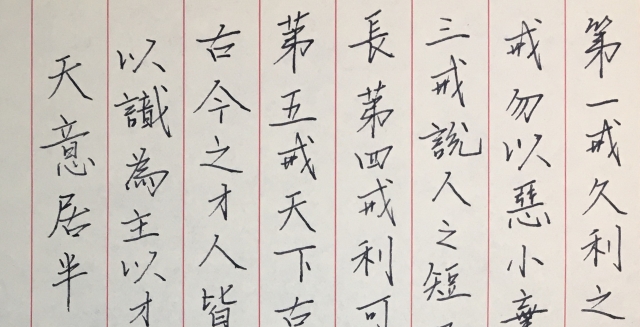 第一戒久利之
戒勿以惡小棄
三戒說人之短
長第四戒利可
第五戒天下古
古今之才人皆
以識為主以才
天意居半